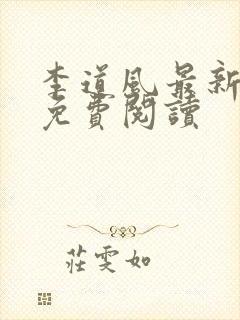 李道風最新
免費閱讀
莊雯如